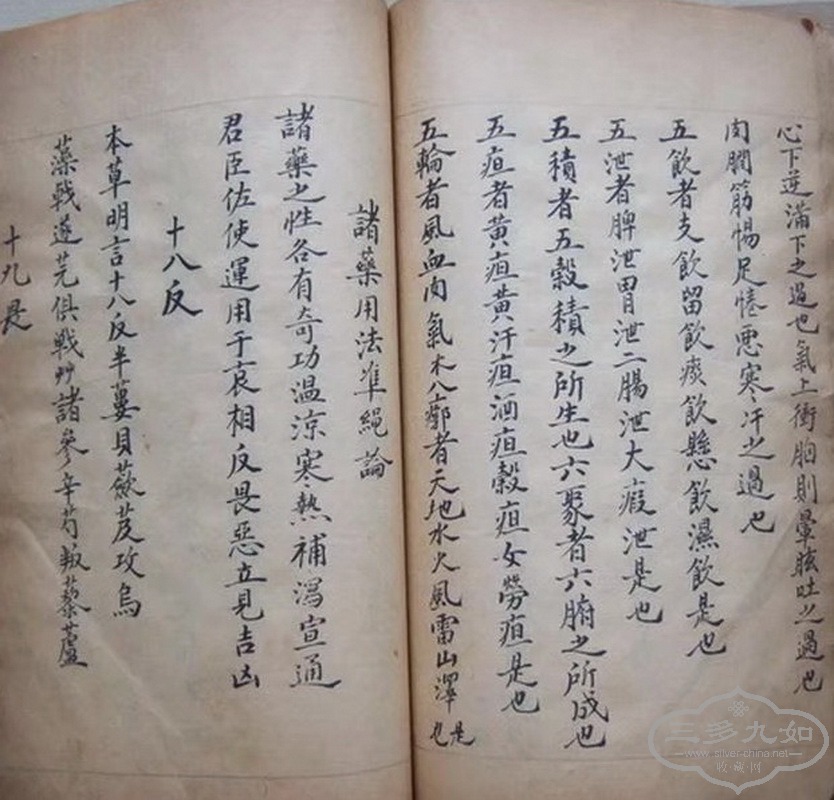 心下逆滿下之過也氣上衝胸則暈眩吐之過也
肉瞤筋惕足惓惡寒汗之過也
五飲者支飲留飲痰飲懸飲濕飲是也
五泄者脾泄胃泄二腸泄大瘕泄是也
五積者五穀積之所生也六聚者六腑之所成也
五疸者黃疸黃汗疸酒疸穀疸女勞疸是也
五輪者風血肉氣木八廓者天地水火風雷山澤是也
諸藥用法準繩論
諸藥之性各有奇功溫涼寒熱補瀉宣通
君臣佐使運用于衷相反畏惡立見吉凶
十八反
本草明言十八反半蔞貝蘞芨攻烏
藻戟遂芫俱戰艸諸參辛芍叛藜蘆
十九畏
三多九如
www.silver-china.net
收藏网